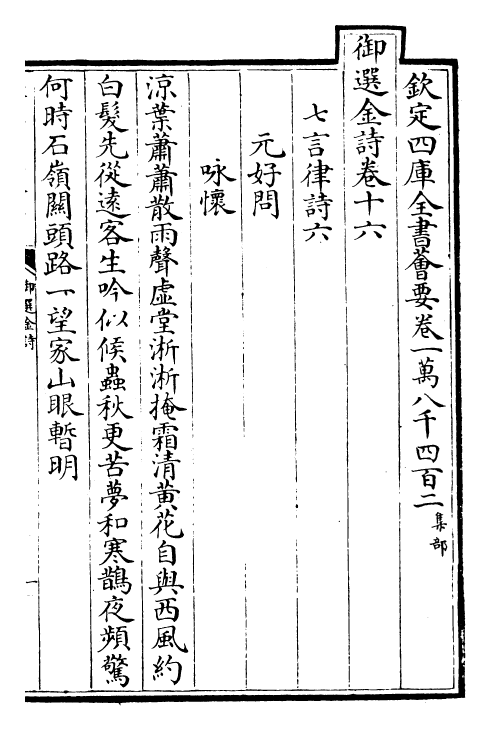 欽定四庫全書薈要卷一萬八千四百二集部
御選金詩卷十六
七言律詩六
元好問
咏懷
涼葉蕭蕭散雨聲虛堂淅淅掩霜清黃花自與西風約
白髮先從遠客生吟似候蟲秋更苦夢和寒鵲夜頻驚
何時石嶺關頭路一望家山眼暫明
御選金詩
一